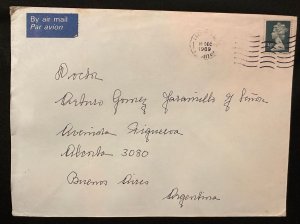 By air mail
Par avion
DEC
1989
Doctor
Arturo Gomez Jaramillo y Señora
Avenida Figueroa
Alcorta 3080
Buenos Aires
Argentina